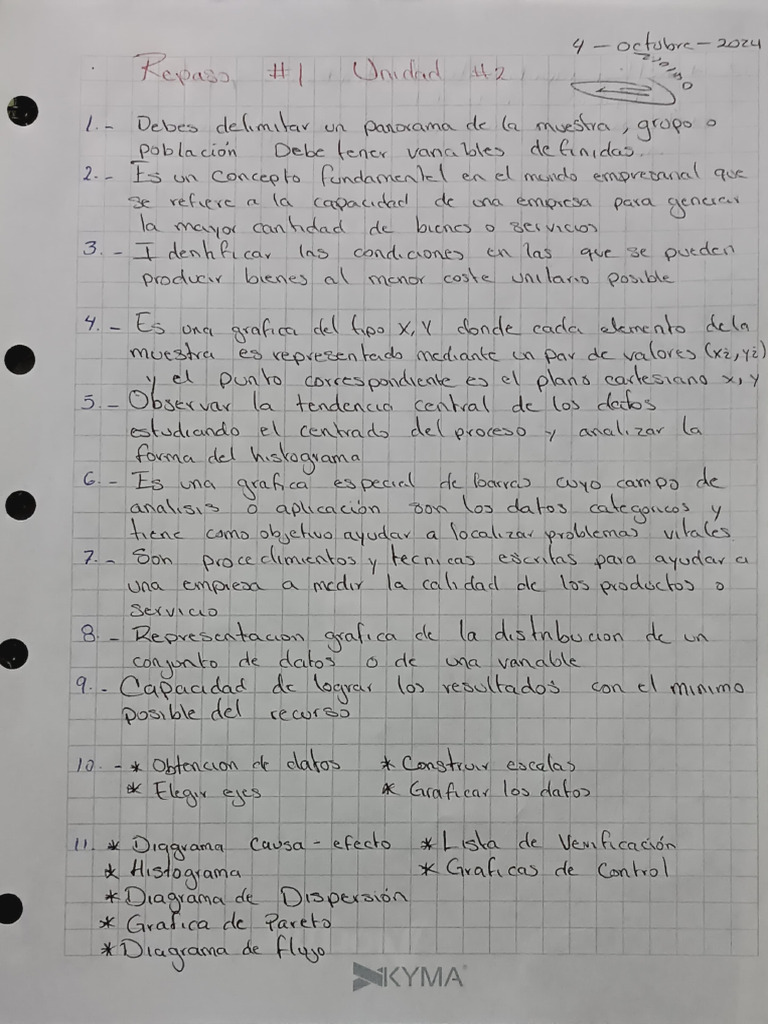 4 - octubre - 2024
Repaso #1 Unidad #2
1.- Debes delimitar un panorama de la muestra, grupo o
población Debe tener variables definidas.
2.- Es un concepto fundamental en el mundo empresarial que
se refiere a la capacidad de una empresa para generar
la mayor cantidad de bienes o servicios
3.- Identificar las condiciones en las que se pueden
producir bienes al menor coste unitario posible
4.- Es una grafica del tipo X, Y donde cada elemento de la
muestra es representado mediante un par de valores (xi, yi)
y el punto correspondiente es el plano cartesiano x, y
5.- Observar la tendencia central de los datos
estudiando el centrado del proceso y analizar la
forma del histograma
6.- Es una grafica especial de barras cuyo campo de
analisis o aplicación son los datos categoricos y
tiene como objetivo ayudar a localizar problemas vitales
7.- Son procedimientos y tecnicas escritas para ayudar a
una empresa a medir la calidad de los productos o
servicio
8.- Representacion grafica de la distribucion de un
conjunto de datos o de una variable
9.- Capacidad de lograr los resultados con el minimo
posible del recurso
10.- * Obtencion de datos * Construir escalas
* Elegir ejes * Graficar los datos
11. * Diagrama causa - efecto * Lista de Verificación
* Histograma * Graficas de Control
* Diagrama de Dispersión
* Grafica de Pareto
* Diagrama de flujo
KYMA